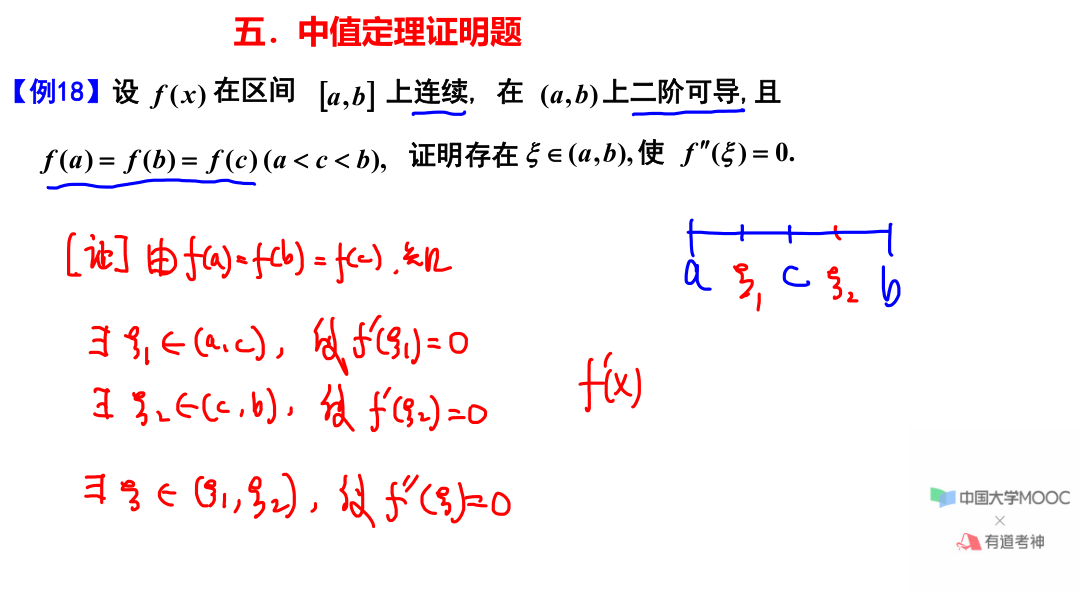 五．中值定理证明题
【例18】设 f(x) 在区间 [a,b] 上连续, 在 (a,b) 上二阶可导, 且
f(a) = f(b) = f(c) (a < c < b), 证明存在 ξ ∈ (a,b), 使 f″(ξ) = 0.
[证] 由 f(a) = f(b) = f(c). 知
a ξ₁ c ξ₂ b
∃ ξ₁ ∈ (a, c), 使 f′(ξ₁) = 0
f′(x)
∃ ξ₂ ∈ (c, b), 使 f′(ξ₂) = 0
∃ ξ ∈ (ξ₁, ξ₂), 使 f″(ξ) = 0
中国大学MOOC
×
有道考神